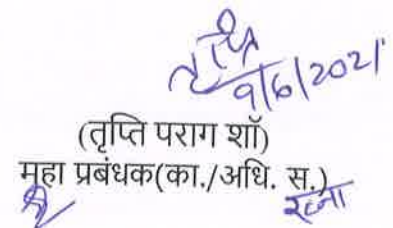 तृप्ति
9/6/2021
(तृप्ति पराग शॉ)
महा प्रबंधक(का./अधि. स.)